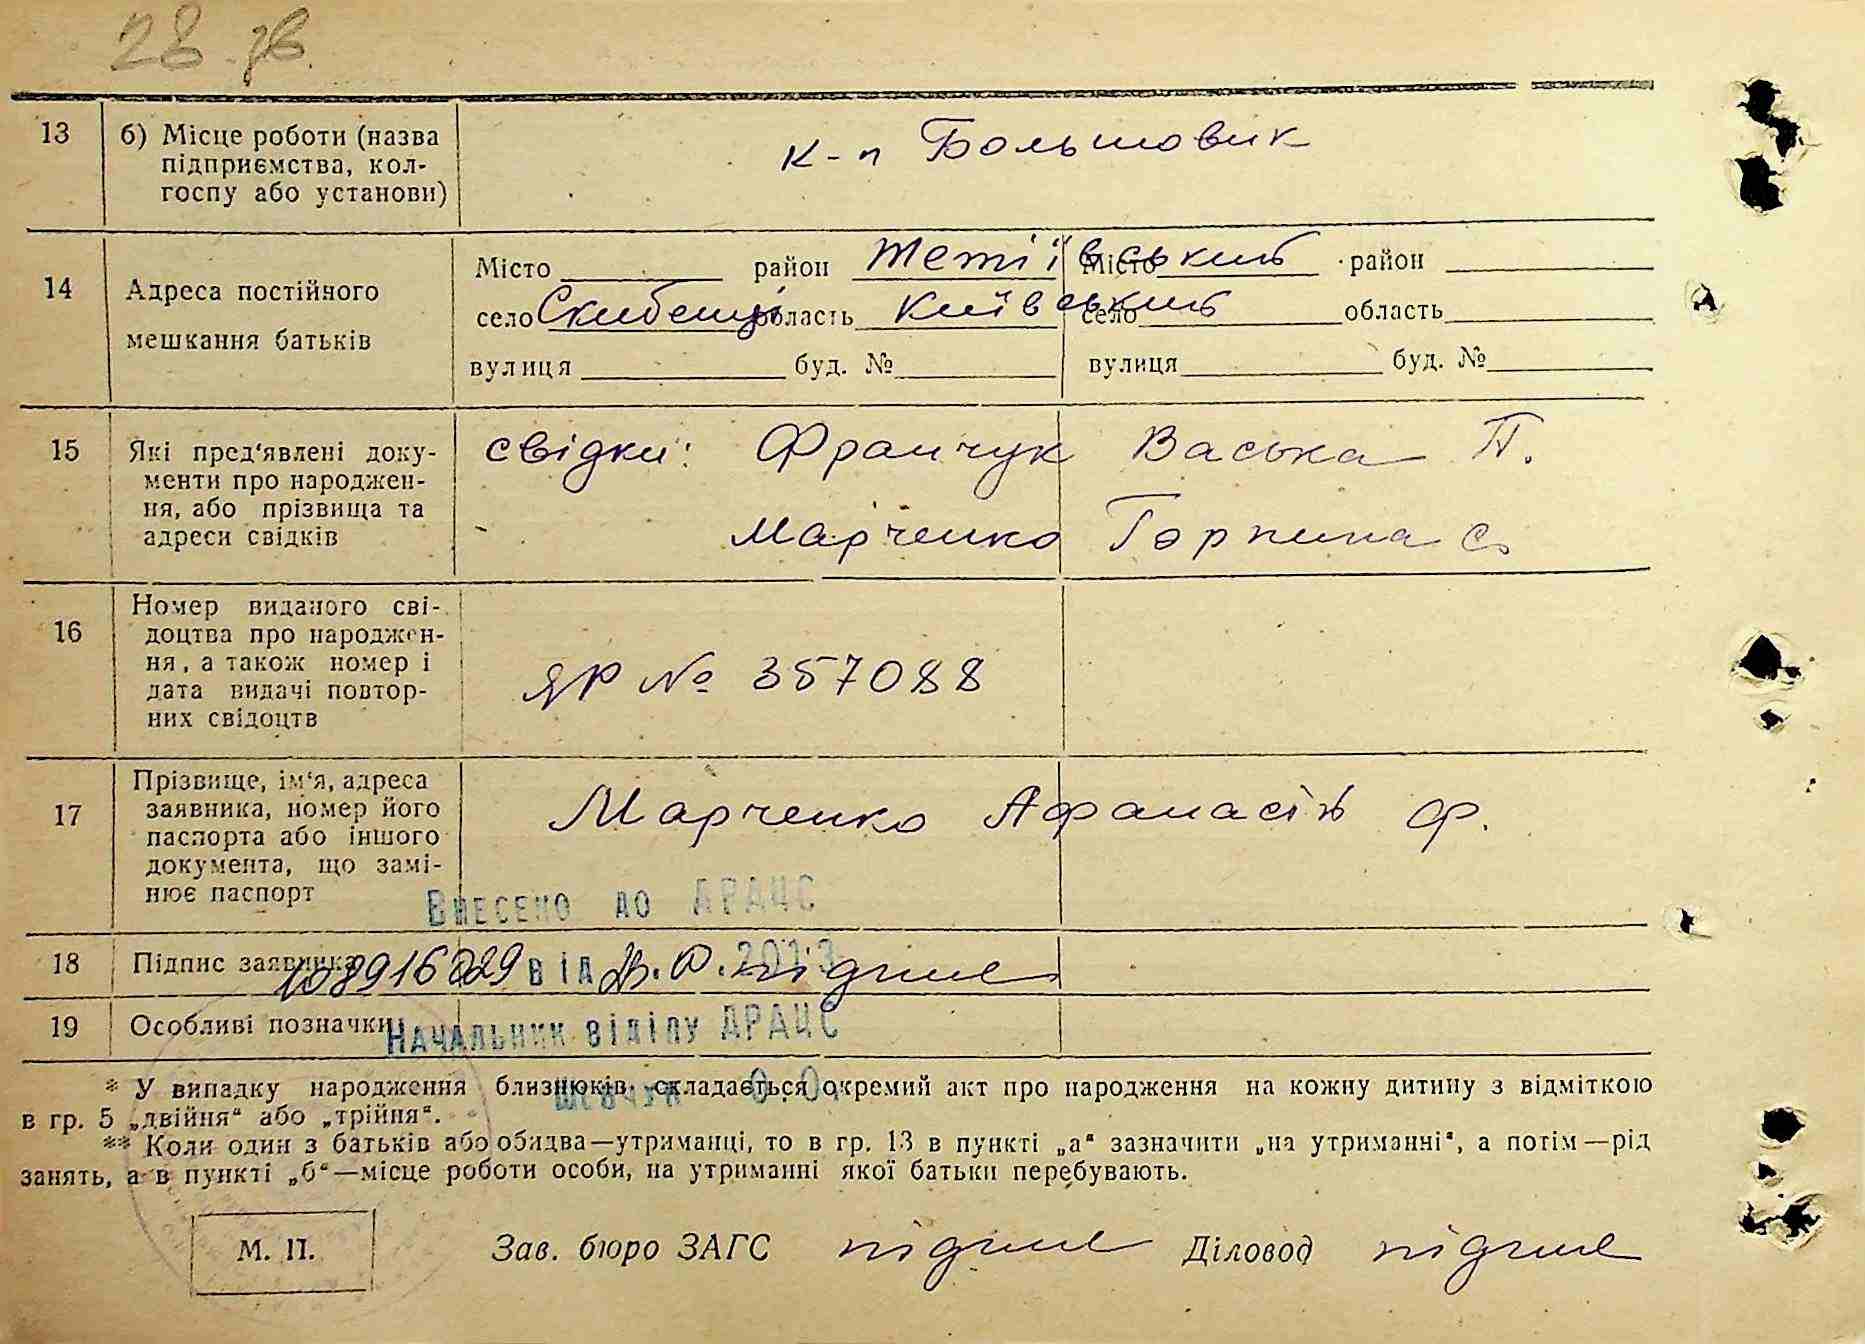 28 зв.
13 б) Місце роботи (назва підприємства, колгоспу або установи) к-п Большовик
14 Адреса постійного мешкання батьків
Місто район Тетіївський Місто район
село Скибенці область Київський село область
вулиця буд. № вулиця буд. №
15 Які пред'явлені доку-
менти про народжен-
ня, або прізвища та
адреси свідків
свідки: Франчук Васька П.
Марченко Горпина С.
16 Номер виданого сві-
доцтва про народжен-
ня, а також номер і
дата видачі повтор-
них свідоцтв
ЯР № 357088
17 Прізвище, ім'я, адреса
заявника, номер його
паспорта або іншого
документа, що замі-
нює паспорт
Марченко Афанасій Ф.
Внесено до ДРАЦС
18 Підпис заявника
від 2013
підпис
19 Особливі позначки
Начальник відділу ДРАЦС
Шевчук О.О.
* У випадку народження близнюків складається окремий акт про народження на кожну дитину з відміткою
в гр. 5 „двійня“ або „трійня“.
** Коли один з батьків або обидва—утриманці, то в гр. 13 в пункті „а“ зазначити „на утриманні“, а потім—рід
занять, а в пункті „б“—місце роботи особи, на утриманні якої батьки перебувають.
М. П. Зав. бюро ЗАГС підпис Діловод підпис